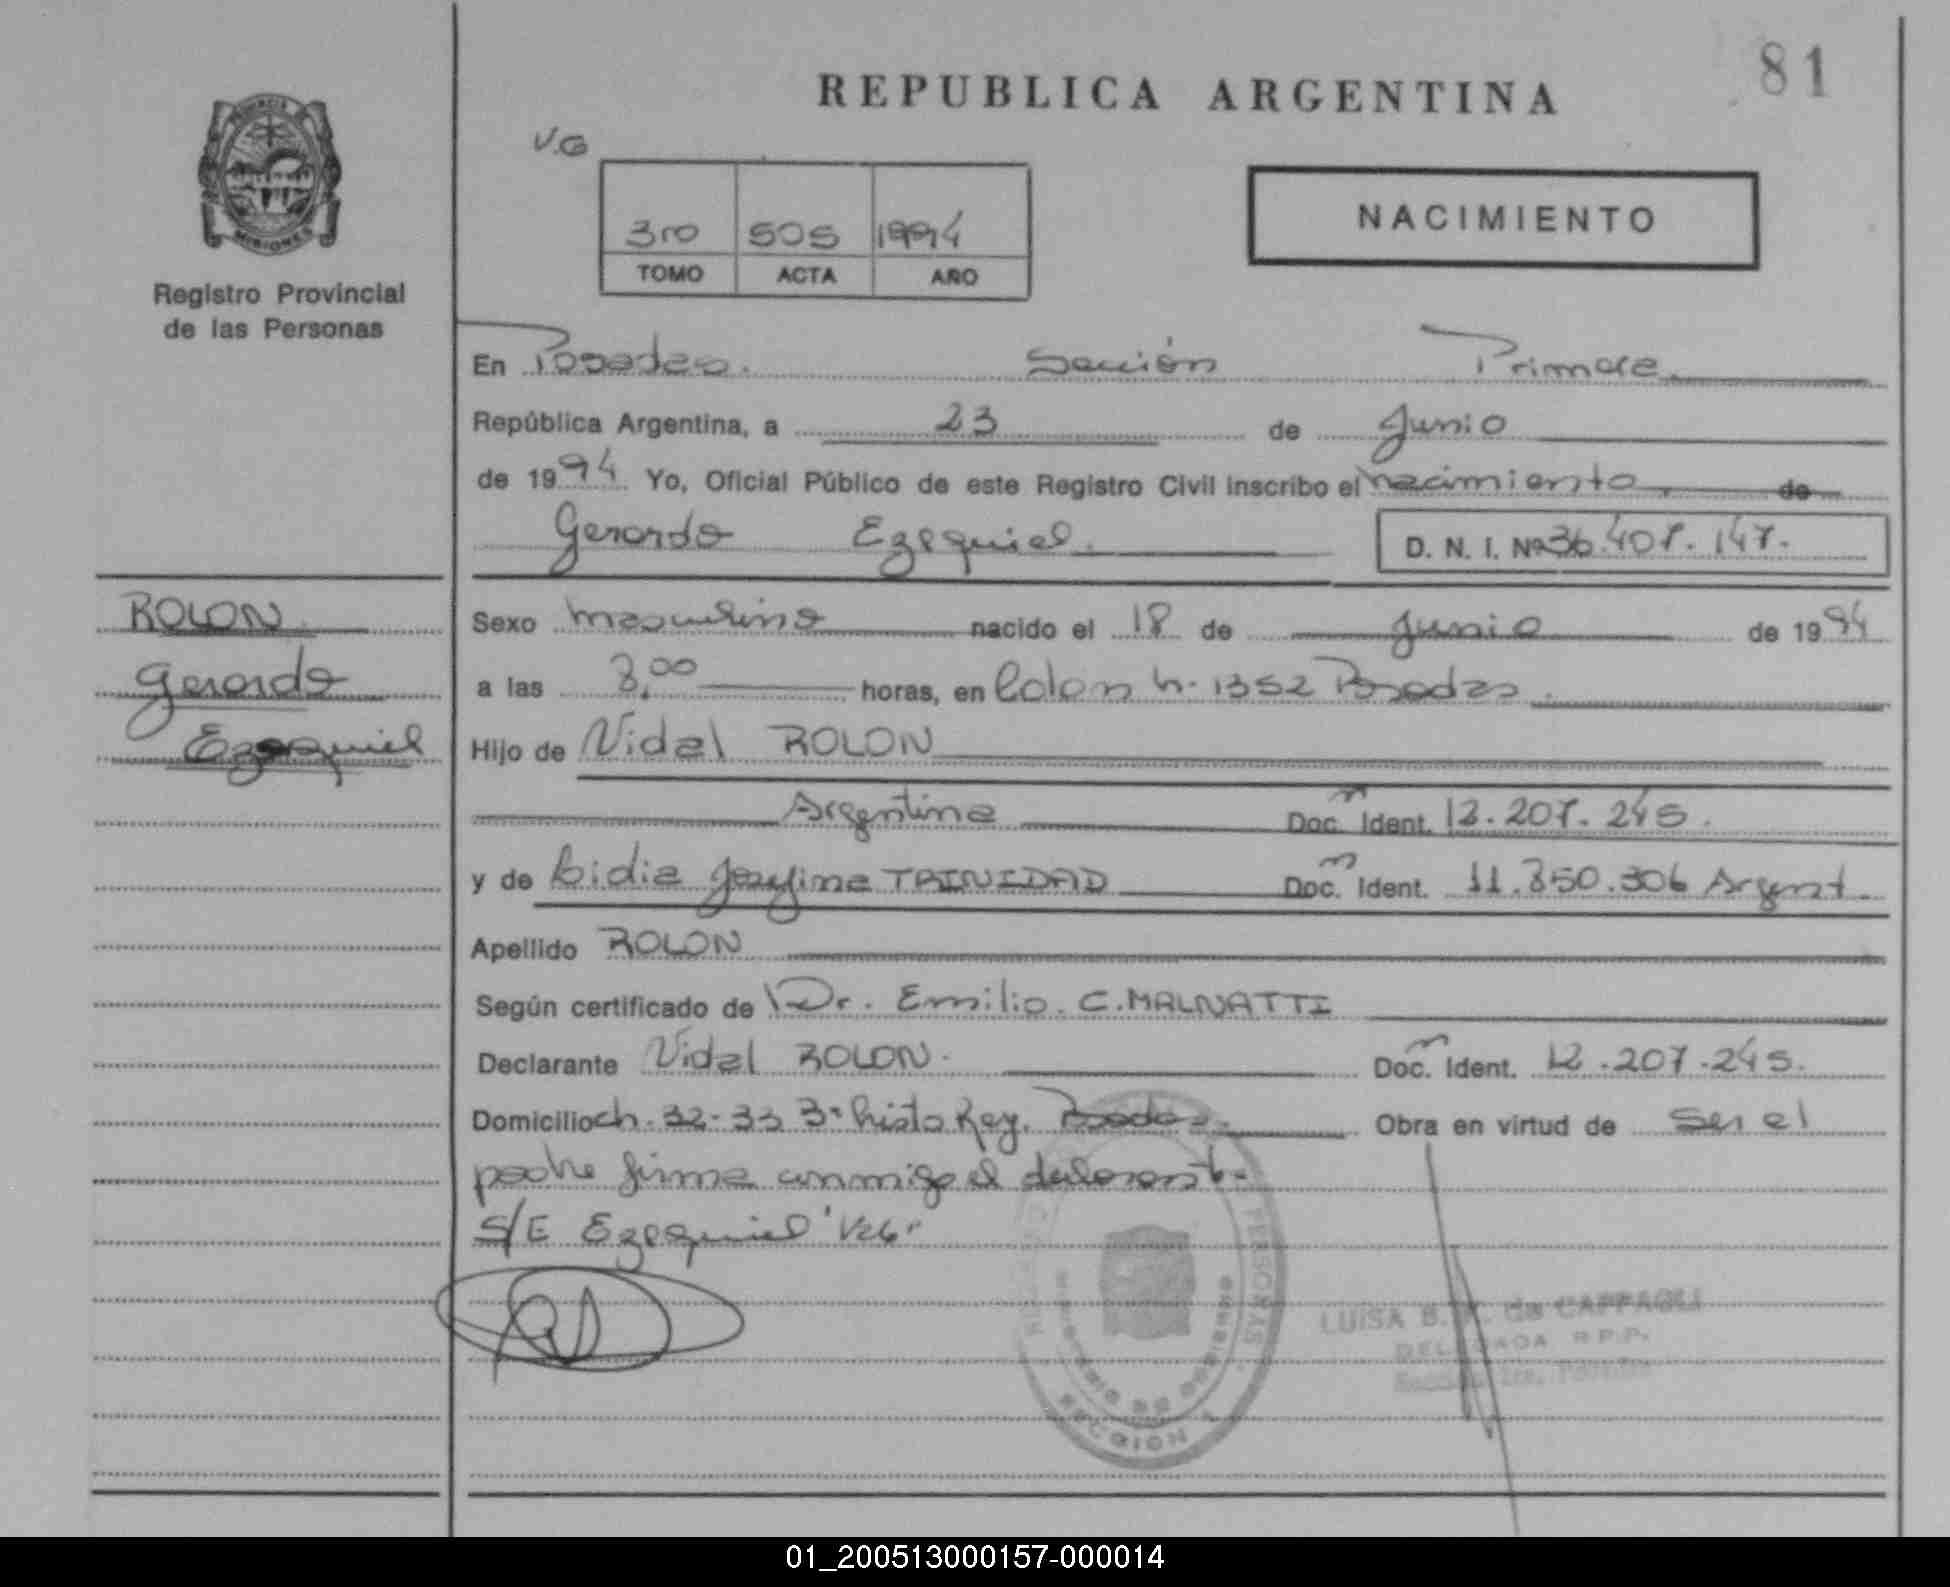 81
REPUBLICA ARGENTINA
V.G
3ro 505 1994
TOMO ACTA AÑO
NACIMIENTO
PROVINCIA
MISIONES
Registro Provincial
de las Personas
En Posadas. Sección Primera
República Argentina, a 23 de Junio
de 1994 Yo, Oficial Público de este Registro Civil inscribo el nacimiento de
Gerardo Ezequiel. D. N. I. Nº 36.407.147.
ROLON
Gerardo
Ezequiel
Sexo masculino nacido el 18 de Junio de 1994
a las 8,00 horas, en Colon n- 1352 Posadas.
Hijo de Vidal ROLON
Argentina Doc. Ident. 12.207.245.
y de Lidia Josefina TRINIDAD Doc. Ident. 11.850.306 Argent.
Apellido ROLON
Según certificado de Dr. Emilio. C. MALNATTI
Declarante Vidal ROLON. Doc. Ident. 12.207.245.
Domicilio ch. 32-33 Bº Cristo Rey. Posadas. Obra en virtud de ser el
padre firma conmigo el declarante-
S/E Ezequiel "Vale"
PERSONAS
SECCION 1
LUISA B. de CAPPAGLI
DELEGADA R.P.P.
Sección 1ra. Posadas
01_200513000157-000014